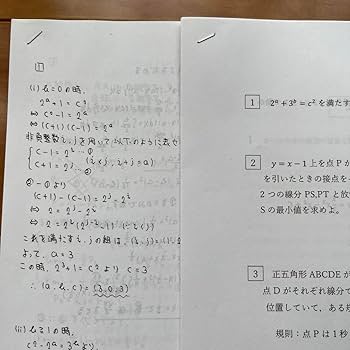 1
(i) b=0の時、
2^a + 1 = c^2
⇔ c^2 - 1 = 2^a
⇔ (c+1)(c-1) = 2^a
非負整数i, jを用いて以下のように表せ
{ c-1 = 2^i …①
{ c+1 = 2^j …② (i<j, i+j=a)
②-①より
(c+1)-(c-1) = 2^j - 2^i
⇔ 2 = 2^j - 2^i
⇔ 2 = 2^i(2^{j-i} - 1) (∵ i<j)
これを満たすi, jの組は、(i, j) = (1,
よって、a=3
この時、2^3+1 = c^2 より c=3
∴ (a, b, c) = (3, 0, 3)
(ii) b≧1の時、
c^2 - 2^a = 3^b より
1 2^a + 3^b = c^2 を満たす
2 y = x − 1 上を点 P が
を引いたときの接点を
2 つの線分 PS,PT と放
S の最小値を求めよ。
3 正五角形 ABCDE が
点 D がそれぞれ線分で
位置していて、ある規
規則：点 P は 1 秒